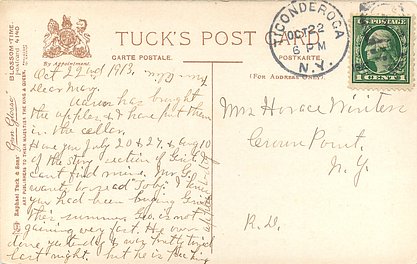 BLOSSOM-TIME.
postcard 4140
"Gem Glosso"
By Appointment.
Raphael Tuck & Sons'
ART PUBLISHERS TO THEIR MAJESTIES THE KING & QUEEN.
TUCK'S POST CARD.
CARTE POSTALE.
POSTKARTE.
(FOR ADDRESS ONLY.)
TICONDEROGA
OCT 22
6 PM
N.Y.
1 CENT 1
Oct 22nd 1913,
Dear May,
has brought
the apples & I have put them
in the cellar.
Have you July 20 & 27, & Aug 10
of the Story section of
can't find mine. Mr.
wants to read "Toby". I knew
you had been buying
this summer. Geo. is not
gaining very fast. He
done, yesterday & was pretty tired
last night, but he is
Mrs Horace Winters
Crown Point,
N.Y.
R.D.